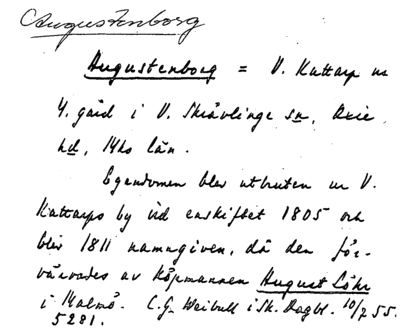 Augustenborg
Augustenborg = V. Kattarp nr
4. gård i V. Skrävlinge sn, Oxie
hd, Mhs län.
Egendomen blev utbruten ur V.
Kattarps by vid enskiftet 1805 och
blev 1811 namngiven, då den för-
värvades av köpmannen August Löhr
i Malmö. C.G. Weibull i Sk. Dagbl. 10/2 55.
5281.